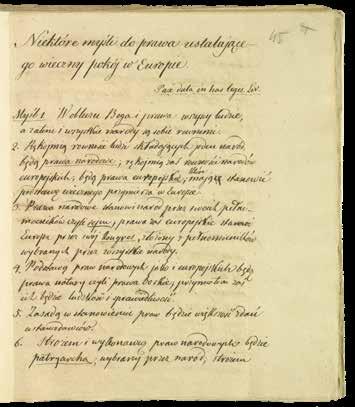 45
Niektóre myśli do prawa ustalające-
go wieczny pokój w Europie.
Pax data in has leges Liv.
Myśl 1. W obliczu Boga i prawa wszyscy ludzie,
a zatem i wszystkie narody są sobie równemi.
2. Rękojmią równości ludzi składających jeden naród,
będą prawa narodowe; rękojmią zaś równości narodów
europejskich, będą prawa europejskie. mające stanowić
podstawę wiecznego przymierza w Europie.
3. Prawa narodowe stanowi naród przez swoich pełno-
mocników czyli sejm; prawa zaś europejskie stanowi
Europa przez swój kongres, złożony z pełnomocników
wybranych przez wszystkie narody.
4. Podstawą praw narodowych jako i europejskich będą
prawa natury czyli prawa boskie, przymiotem zaś
ich będzie ludzkość i sprawiedliwość.
5. Zasadą w stanowieniu praw będzie większość zdań
prawodawców.
6. Stróżem i wykonawcą praw narodowych będzie
patryarcha, wybrany przez naród; stróżem